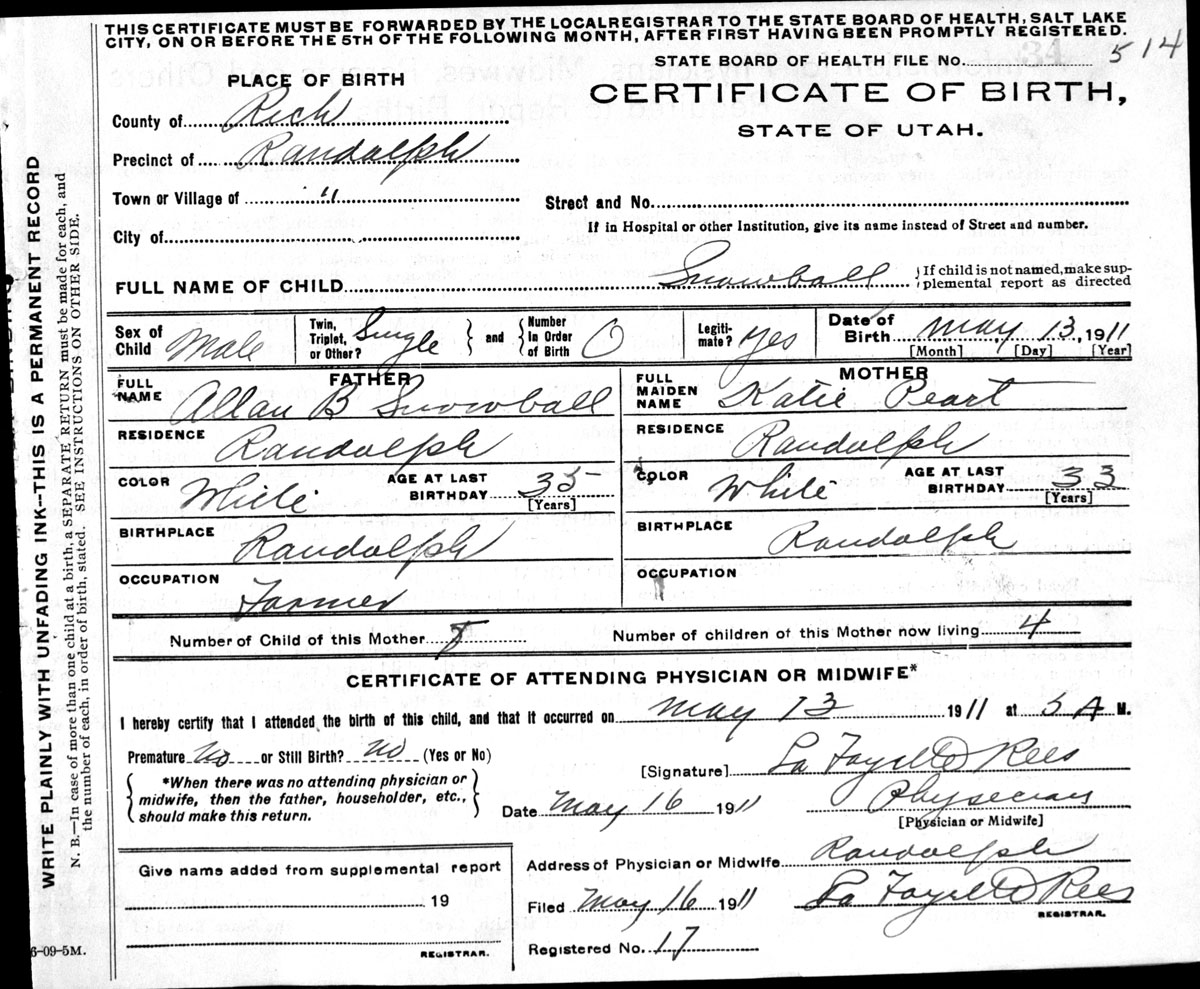 THIS CERTIFICATE MUST BE FORWARDED BY THE LOCAL REGISTRAR TO THE STATE BOARD OF HEALTH, SALT LAKE
CITY, ON OR BEFORE THE 5TH OF THE FOLLOWING MONTH, AFTER FIRST HAVING BEEN PROMPTLY REGISTERED.
STATE BOARD OF HEALTH FILE No. 514
PLACE OF BIRTH
CERTIFICATE OF BIRTH,
STATE OF UTAH.
County of Rich
Precinct of Randolph
Town or Village of "
Street and No.
If in Hospital or other Institution, give its name instead of Street and number.
City of
FULL NAME OF CHILD Snowball {If child is not named, make sup-
plemental report as directed
Sex of Child Male
Twin, Triplet, or Other? Single } and { Number in Order of Birth 0
Legiti-mate? Yes
Date of Birth May 13, 1911
[Month] [Day] [Year]
FATHER
FULL NAME Allan B Snowball
RESIDENCE Randolph
COLOR White AGE AT LAST BIRTHDAY 35
[Years]
BIRTHPLACE Randolph
OCCUPATION Farmer
MOTHER
FULL MAIDEN NAME Katie Peart
RESIDENCE Randolph
COLOR White AGE AT LAST BIRTHDAY 33
[Years]
BIRTHPLACE Randolph
OCCUPATION
Number of Child of this Mother
Number of children of this Mother now living 4
CERTIFICATE OF ATTENDING PHYSICIAN OR MIDWIFE*
I hereby certify that I attended the birth of this child, and that it occurred on May 13 1911 at 5 A M.
Premature No or Still Birth? No (Yes or No)
*When there was no attending physician or
midwife, then the father, householder, etc.,
should make this return.
[Signature] La Fayette Rees
Date May 16 1911 Physecian
[Physician or Midwife]
Address of Physician or Midwife Randolph
Filed May 16 1911 La Fayette Rees
REGISTRAR.
Registered No. 17
Give name added from supplemental report
19
REGISTRAR.
6-09-5M.
WRITE PLAINLY WITH UNFADING INK—THIS IS A PERMANENT RECORD
N. B.—In case of more than one child at a birth, a SEPARATE RETURN must be made for each, and
the number of each, in order of birth, stated. SEE INSTRUCTIONS ON OTHER SIDE.